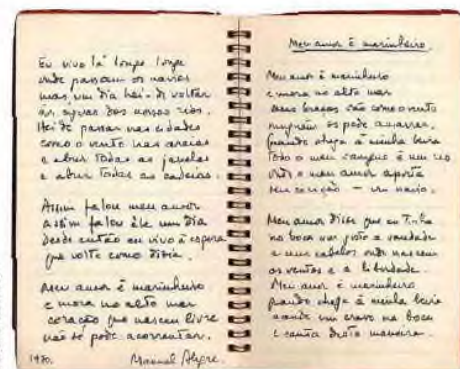 Eu vivo lá longe longe
onde passam os navios
mas um dia hei-de voltar
às águas dos nossos rios.
Hei de passar nas cidades
como o vento nas areias
e abrir todas as janelas
e abrir todas as cadeias.
Assim falou meu amor
assim falou ele um dia
desde então eu vivo à espera
que volte como dizia.
Meu amor é marinheiro
e mora no alto mar
coração que nasceu livre
não se pode acorrentar.
1970. Manuel Alegre.
Meu amor é marinheiro
Meu amor é marinheiro
e mora no alto mar
seus braços são como o vento
ninguém os pode amarrar.
Quando chega à minha beira
todo o meu sangue é um rio
onde o meu amor aporta
seu coração – um navio.
Meu amor disse que eu tinha
na boca um gosto a saudade
e uns cabelos onde nascem
os ventos e a liberdade.
Meu amor é marinheiro
quando chega à minha beira
acende um cravo na boca
e canta desta maneira.